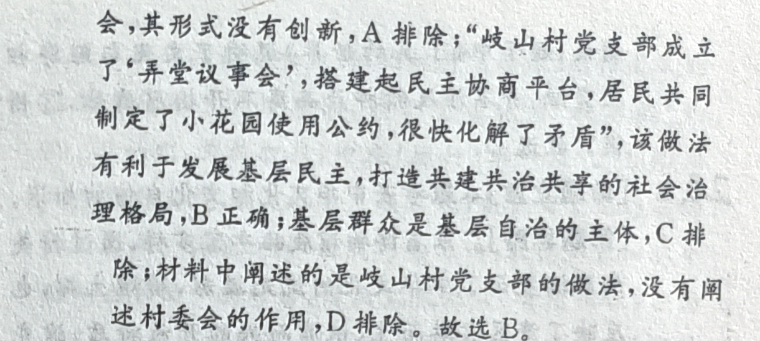 会,其形式没有创新,A 排除;“岐山村党支部成立
了‘弄堂议事会’,搭建起民主协商平台,居民共同
制定了小花园使用公约,很快化解了矛盾”,该做法
有利于发展基层民主,打造共建共治共享的社会治
理格局,B 正确;基层群众是基层自治的主体,C 排
除;材料中阐述的是岐山村党支部的做法,没有阐
述村委会的作用,D 排除。故选 B。